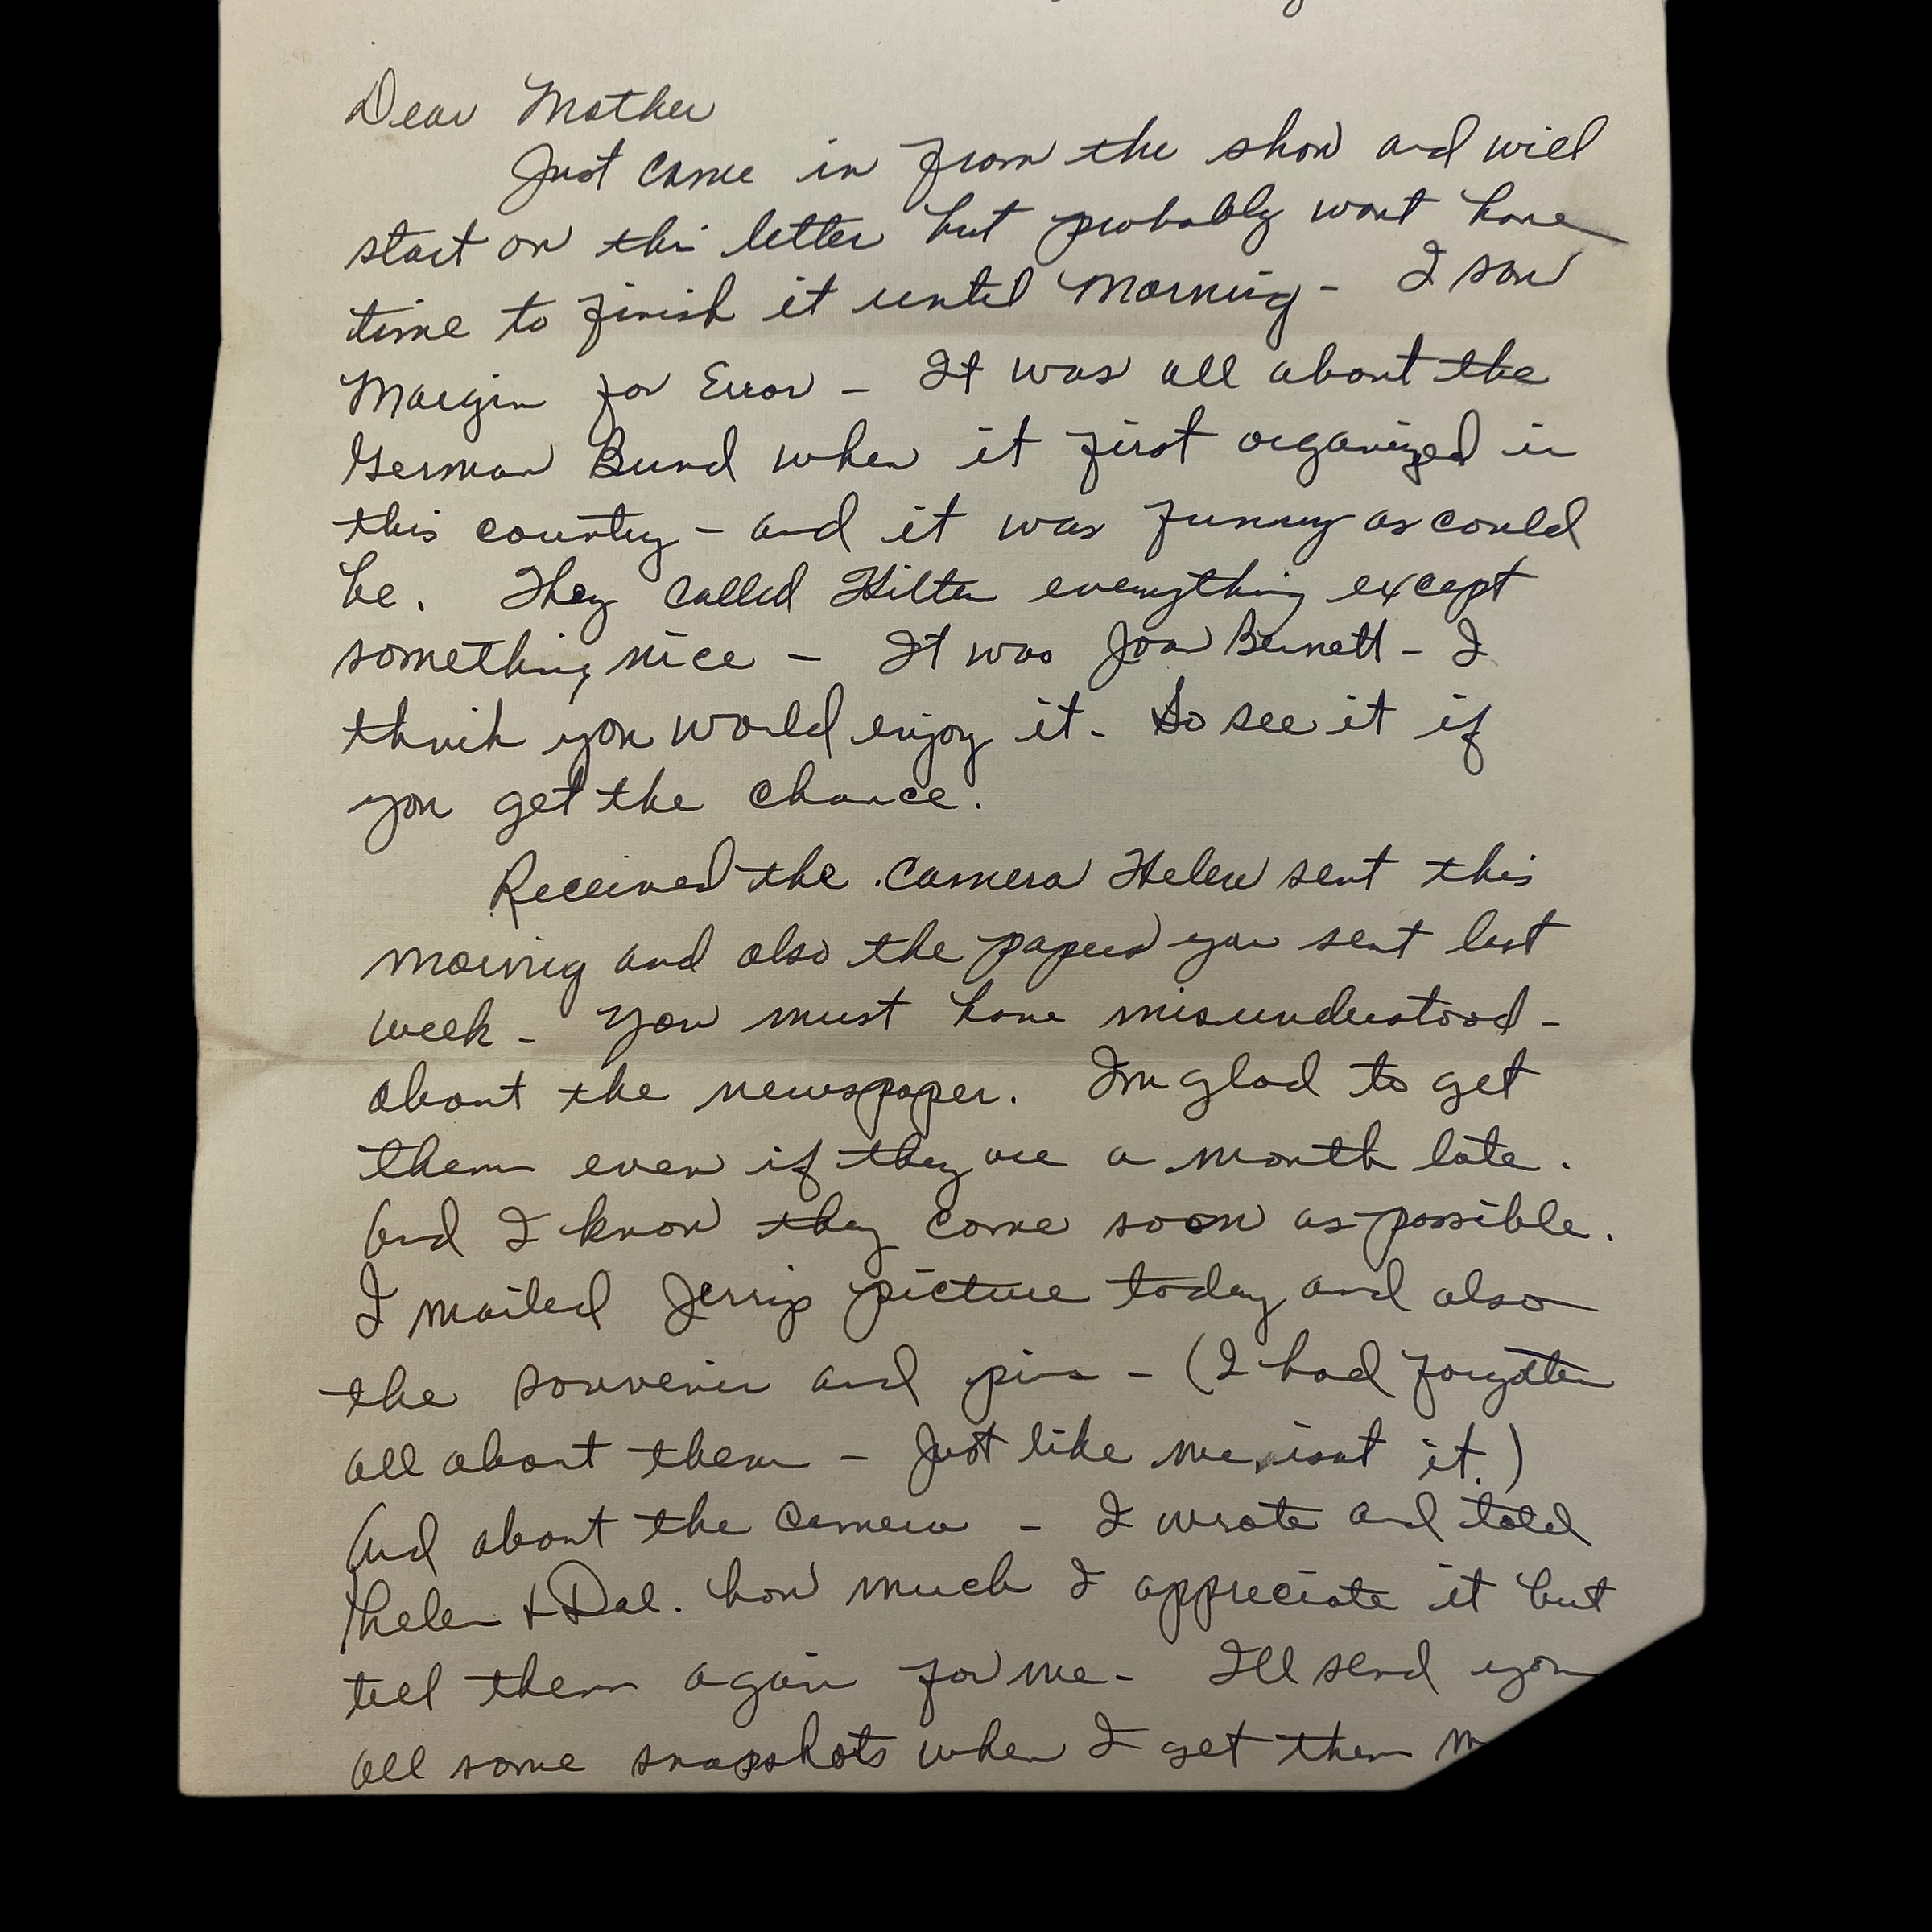 Dear Mother
Just came in from the show and will
start on this letter but probably wont have
time to finish it until morning - I saw
Margin for Error - It was all about the
German Bund when it first organized in
this country - and it was funny as could
be. They called Hilter everything except
something nice - It was Joan Bennett - I
think you would enjoy it. So see it if
you get the chance.
Received the camera Helen sent this
morning and also the papers you sent last
week - You must have misunderstood -
about the newspaper. Im glad to get
them even if they are a month late.
And I know they come soon as possible.
I mailed Jerrys picture today and also
the souvenir and pins - (I had forgotten
all about them - Just like me, isnt it.)
And about the camera - I wrote and told
Helen + Dal. how much I appreciate it but
tell them again for me - I'll send you
all some snapshots when I get them